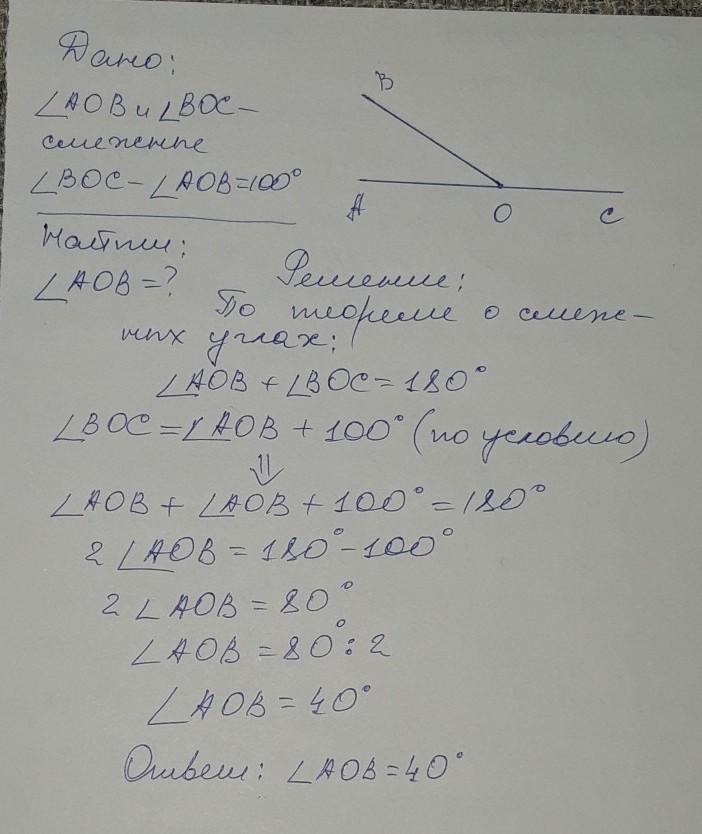 Дано:
∠AOB и ∠BOC –
смежные
∠BOC – ∠AOB = 100°
Найти:
∠AOB = ?
B
A
O
C
Решение:
По теореме о смеж–
ных углах:
∠AOB + ∠BOC = 180°
∠BOC = ∠AOB + 100° (по условию)
⇓
∠AOB + ∠AOB + 100° = 180°
2 ∠AOB = 180° – 100°
2 ∠AOB = 80°
∠AOB = 80° : 2
∠AOB = 40°
Ответ: ∠AOB = 40°